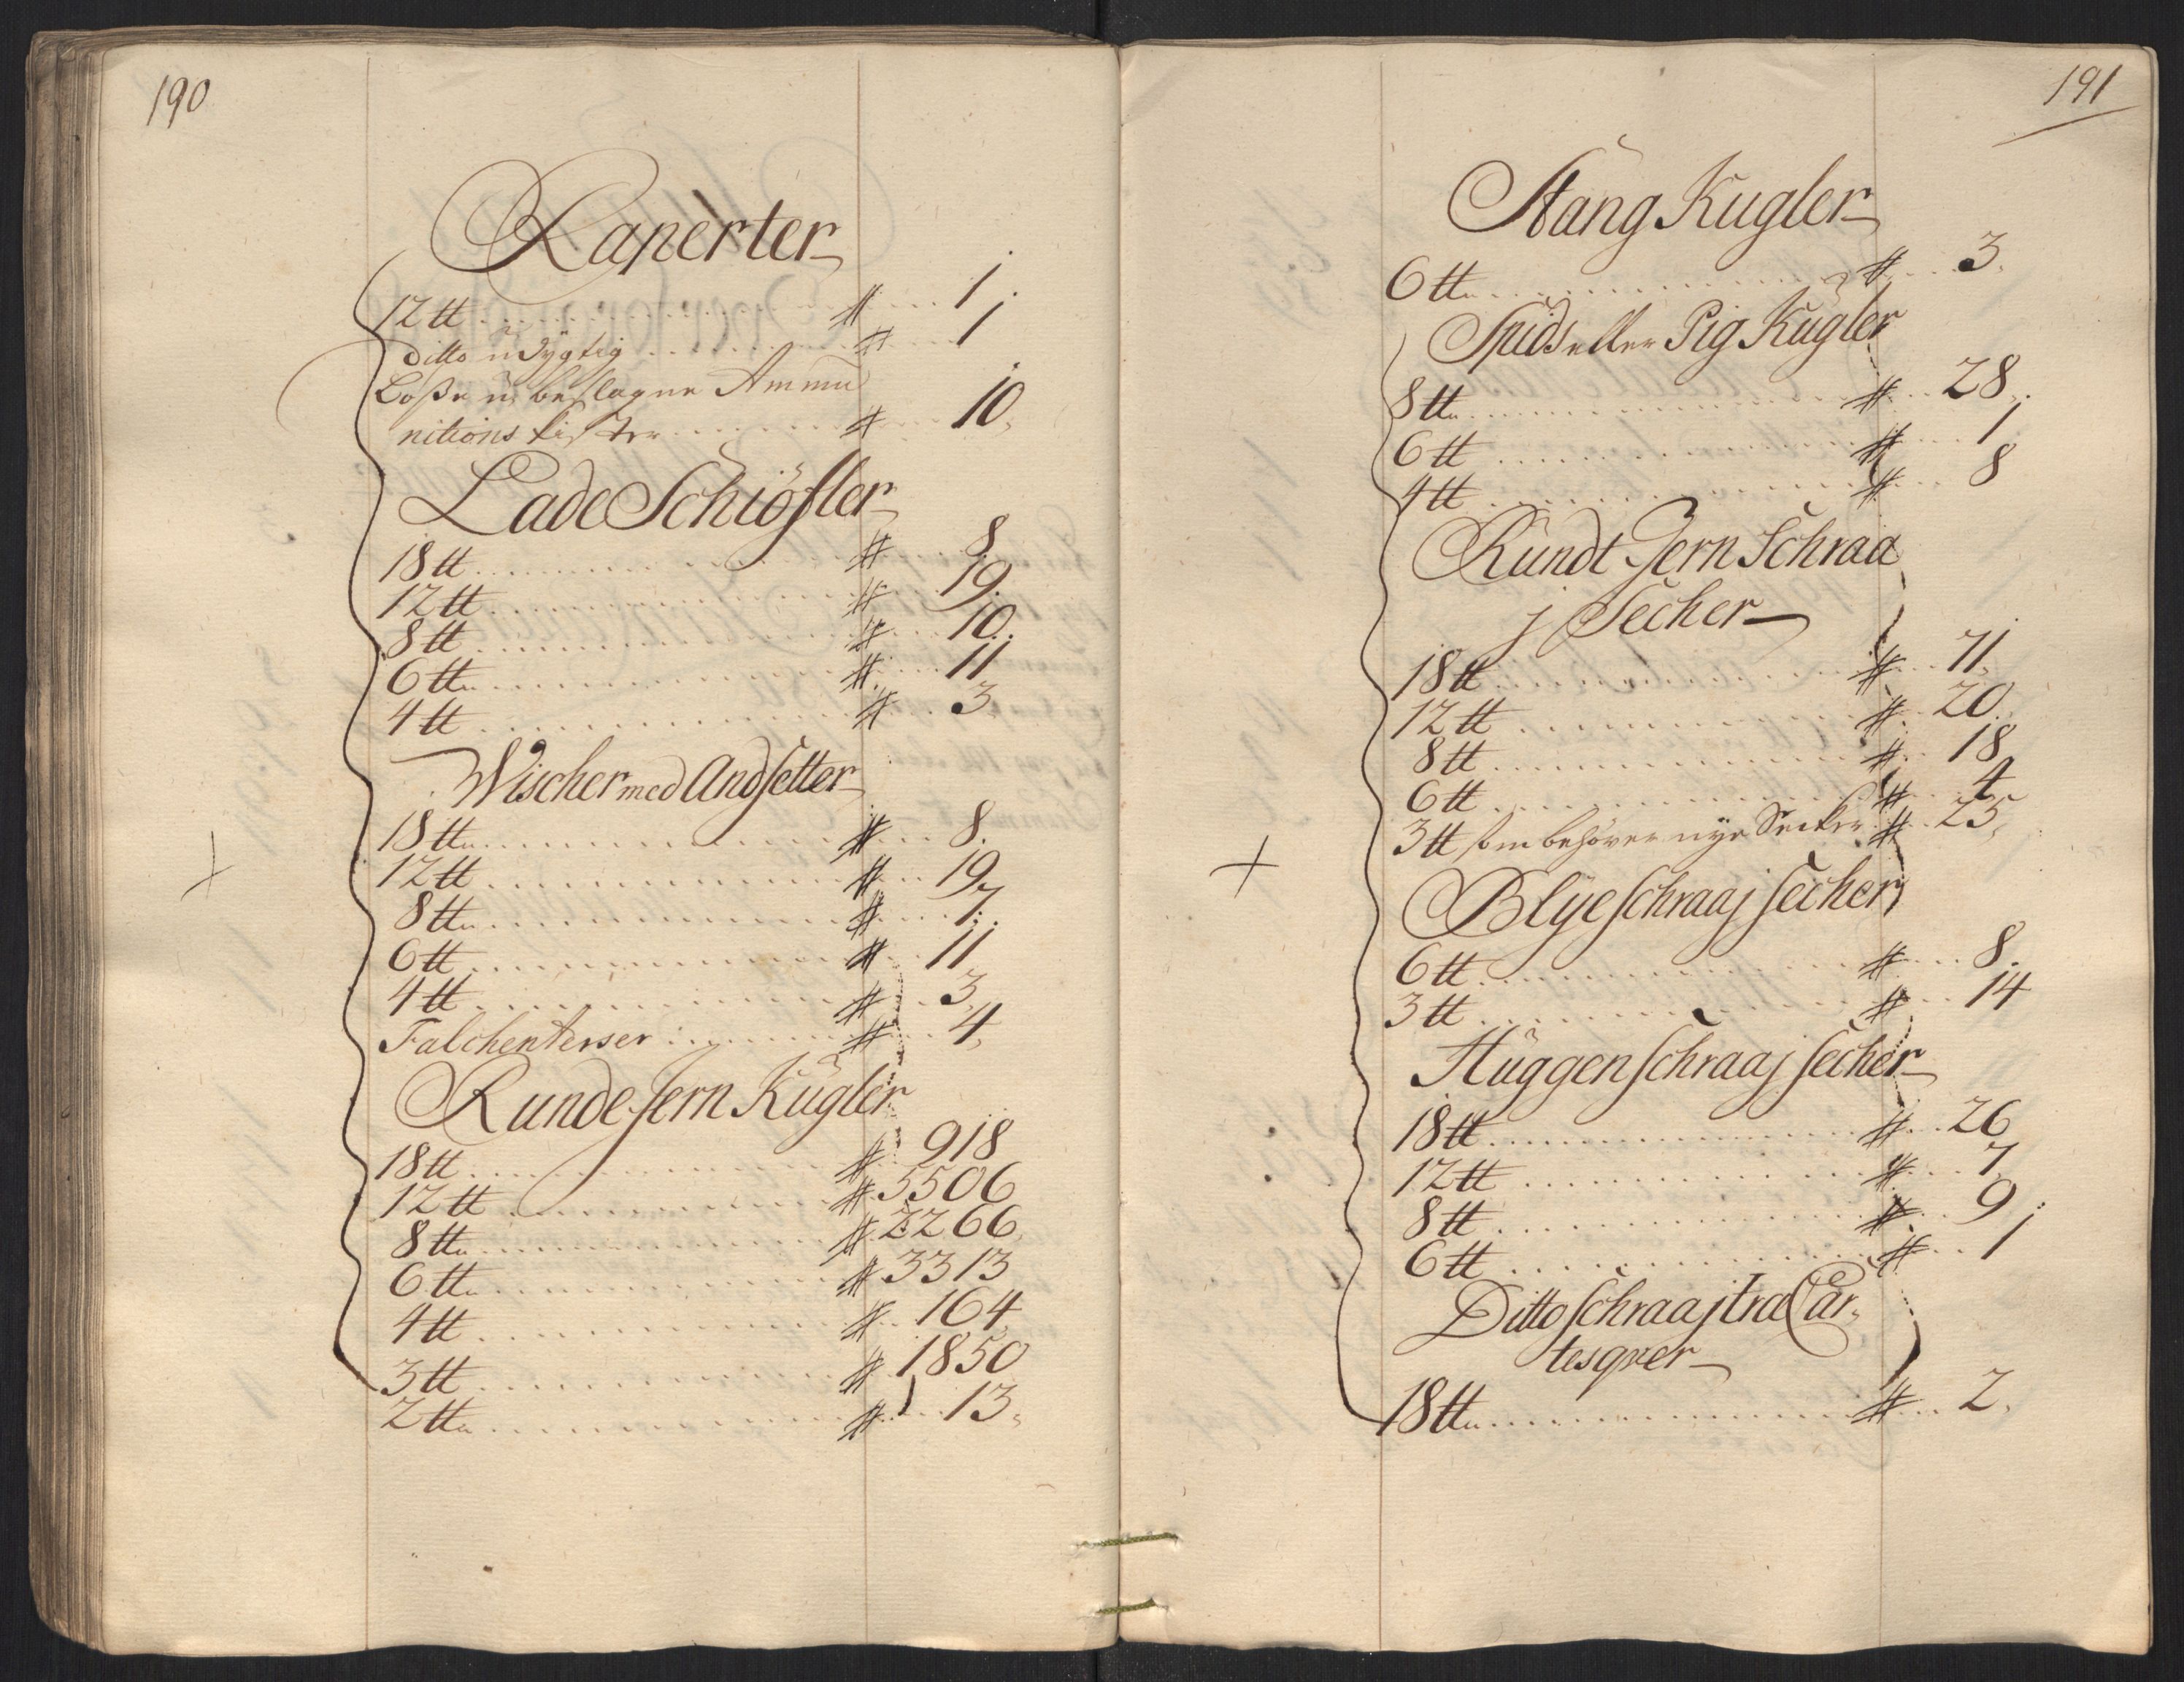 190
Raperter
12 tt ........ # ... 1.
ditto udygtig ........ # ... 1
Loße u beslagne Ammu
nitions kister ........ # ... 10,
Lade Schiøfler
18 tt ........ # ... 8.
12 tt ........ # ... 19.
8 tt ........ # ... 10.
6 tt ........ # ... 11
4 tt ........ # ... 3
Wischer med Andsetter
18 tt ........ # ... 8.
12 tt ........ # ... 19,
8 tt ........ # ... 7.
6 tt ........ # ... 11
4 tt ........ # ... 3,
Falchenterser ........ # ... 4,
Runde Jern Kugler
18 tt ........ # 918
12 tt ........ # 5506
8 tt ........ # 2266
6 tt ........ # 3313
4 tt ........ # 164
3 tt ........ # 1850
2 tt ........ # ... 13,
191
Stang Kugler
6 tt ........ # ... 3,
Spids eller Pig Kugler
8 tt ........ # ... 28.
6 tt ........ # ... 1
4 tt ........ # ... 8
Rundt Jern Schraa
j Secher
18 tt ........ # ... 71,
12 tt ........ # ... 20.
8 tt ........ # ... 18
6 tt ........ # ... 4
3 tt som behøver nye Secker # ... 25,
Blye schraa j secher
6 tt ........ # ... 8.
3 tt ........ # ... 14
Huggen schraa j secher
18 tt ........ # ... 26
12 tt ........ # ... 7,
8 tt ........ # ... 9.
6 tt ........ # ... 1
Ditto schraa j træ Car,
tesqver
18 tt ........ # ... 2,